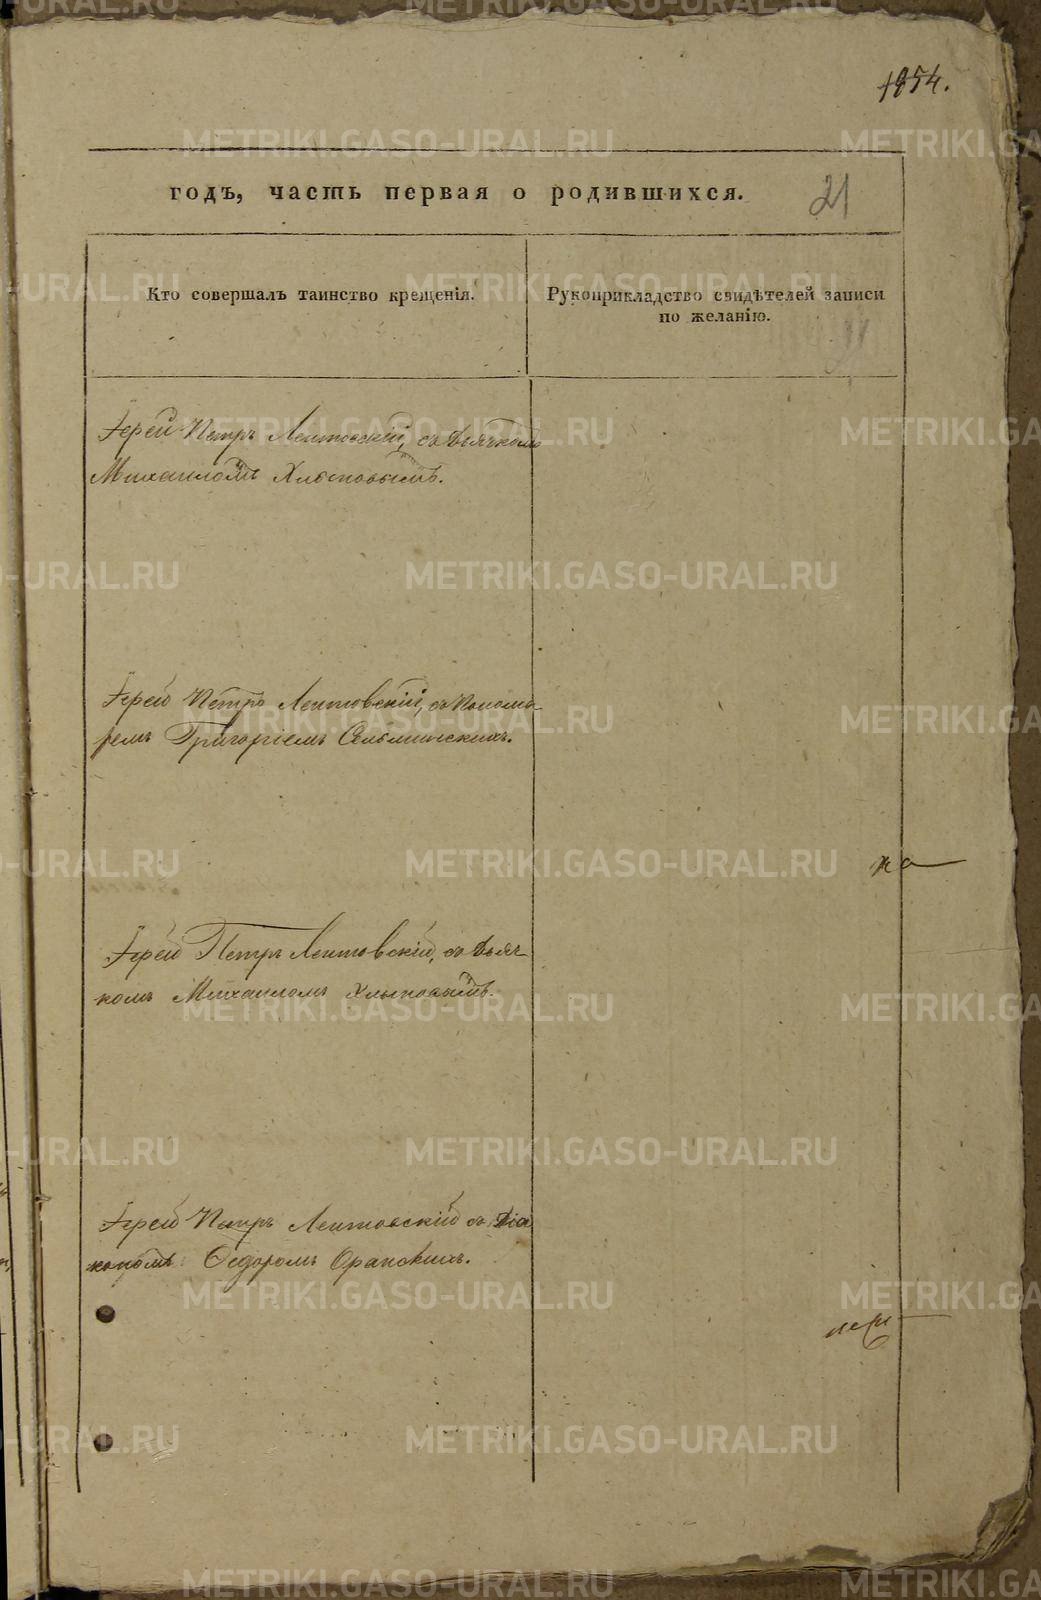 1854.
годъ, часть первая о родившихся. 21
Кто совершалъ таинство крещенія.
Рукоприкладство свидѣтелей записи
по желанію.
Іерей Петръ Лентовскій, съ дьячкомъ
Михаиломъ Хлыновымъ.
Іерей Петръ Лентовскій, съ Понома-
ремъ Григоріемъ Сельминскихъ.
Іерей Петръ Лентовскій, съ дьяч-
комъ Михаиломъ Хлыновымъ.
Іерей Петръ Лентовскій съ Діа
кономъ Ѳедоромъ
METRIKI.GASO-URAL.RU